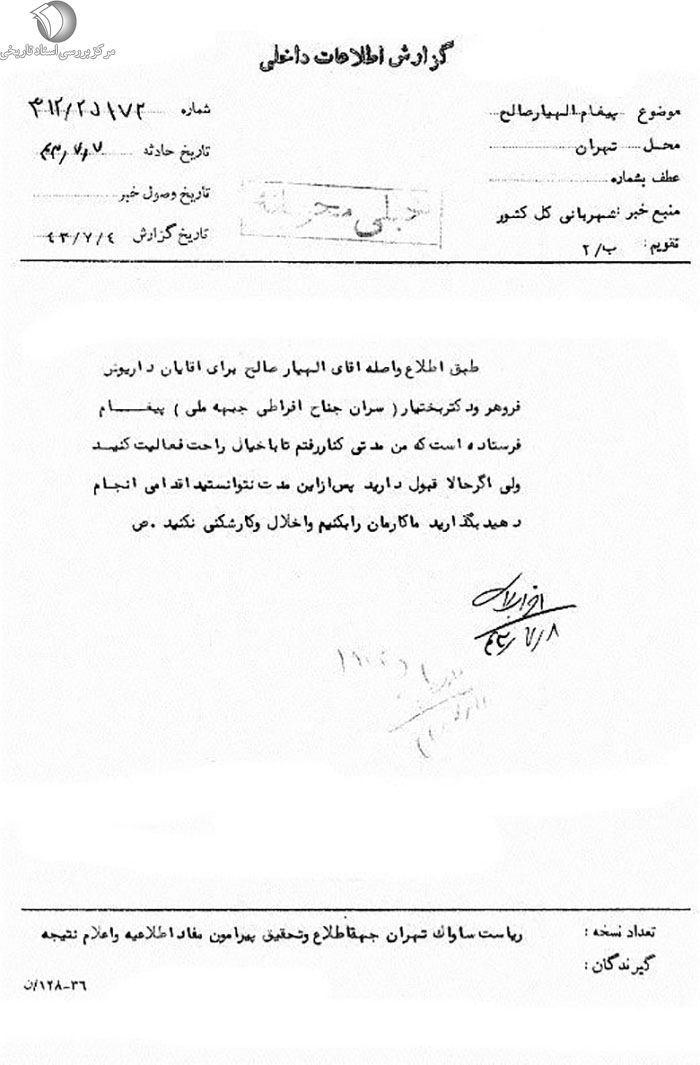 مرکز بررسی اسناد تاریخی
گزارش اطلاعات داخلی
موضوع پیغام الهیار صالح
محل تهران
عطف بشماره
منبع خبر: شهربانی کل کشور
تقویم: ب/۲
شماره
تاریخ حادثه
تاریخ وصول خبر
تاریخ گزارش ۴۳/۷/۴
خیلی محرمانه
طبق اطلاع واصله اقای الهیار صالح برای اقایان داریوش
فروهر ودکتربختیار (سران جناح افراطی جبهه ملی) پیغـــام
فرستاده است که من مدتی کناررفتم تا باخیال راحت فعالیت کنیـد
ولی اگرحالا قبول دارید پس ازاین مدت نتوانستید اقدامی انجام
دهید بگذارید ماکارمان رابکنیم واخلال وکارشکنی نکنید .ص
تعداد نسخه:
گیرندگان:
ریاست ساواک تهران جهة اطلاع وتحقیق پیرامون مفاد اطلاعیه واعلام نتیجه
۳۶-۱۲۸/ن